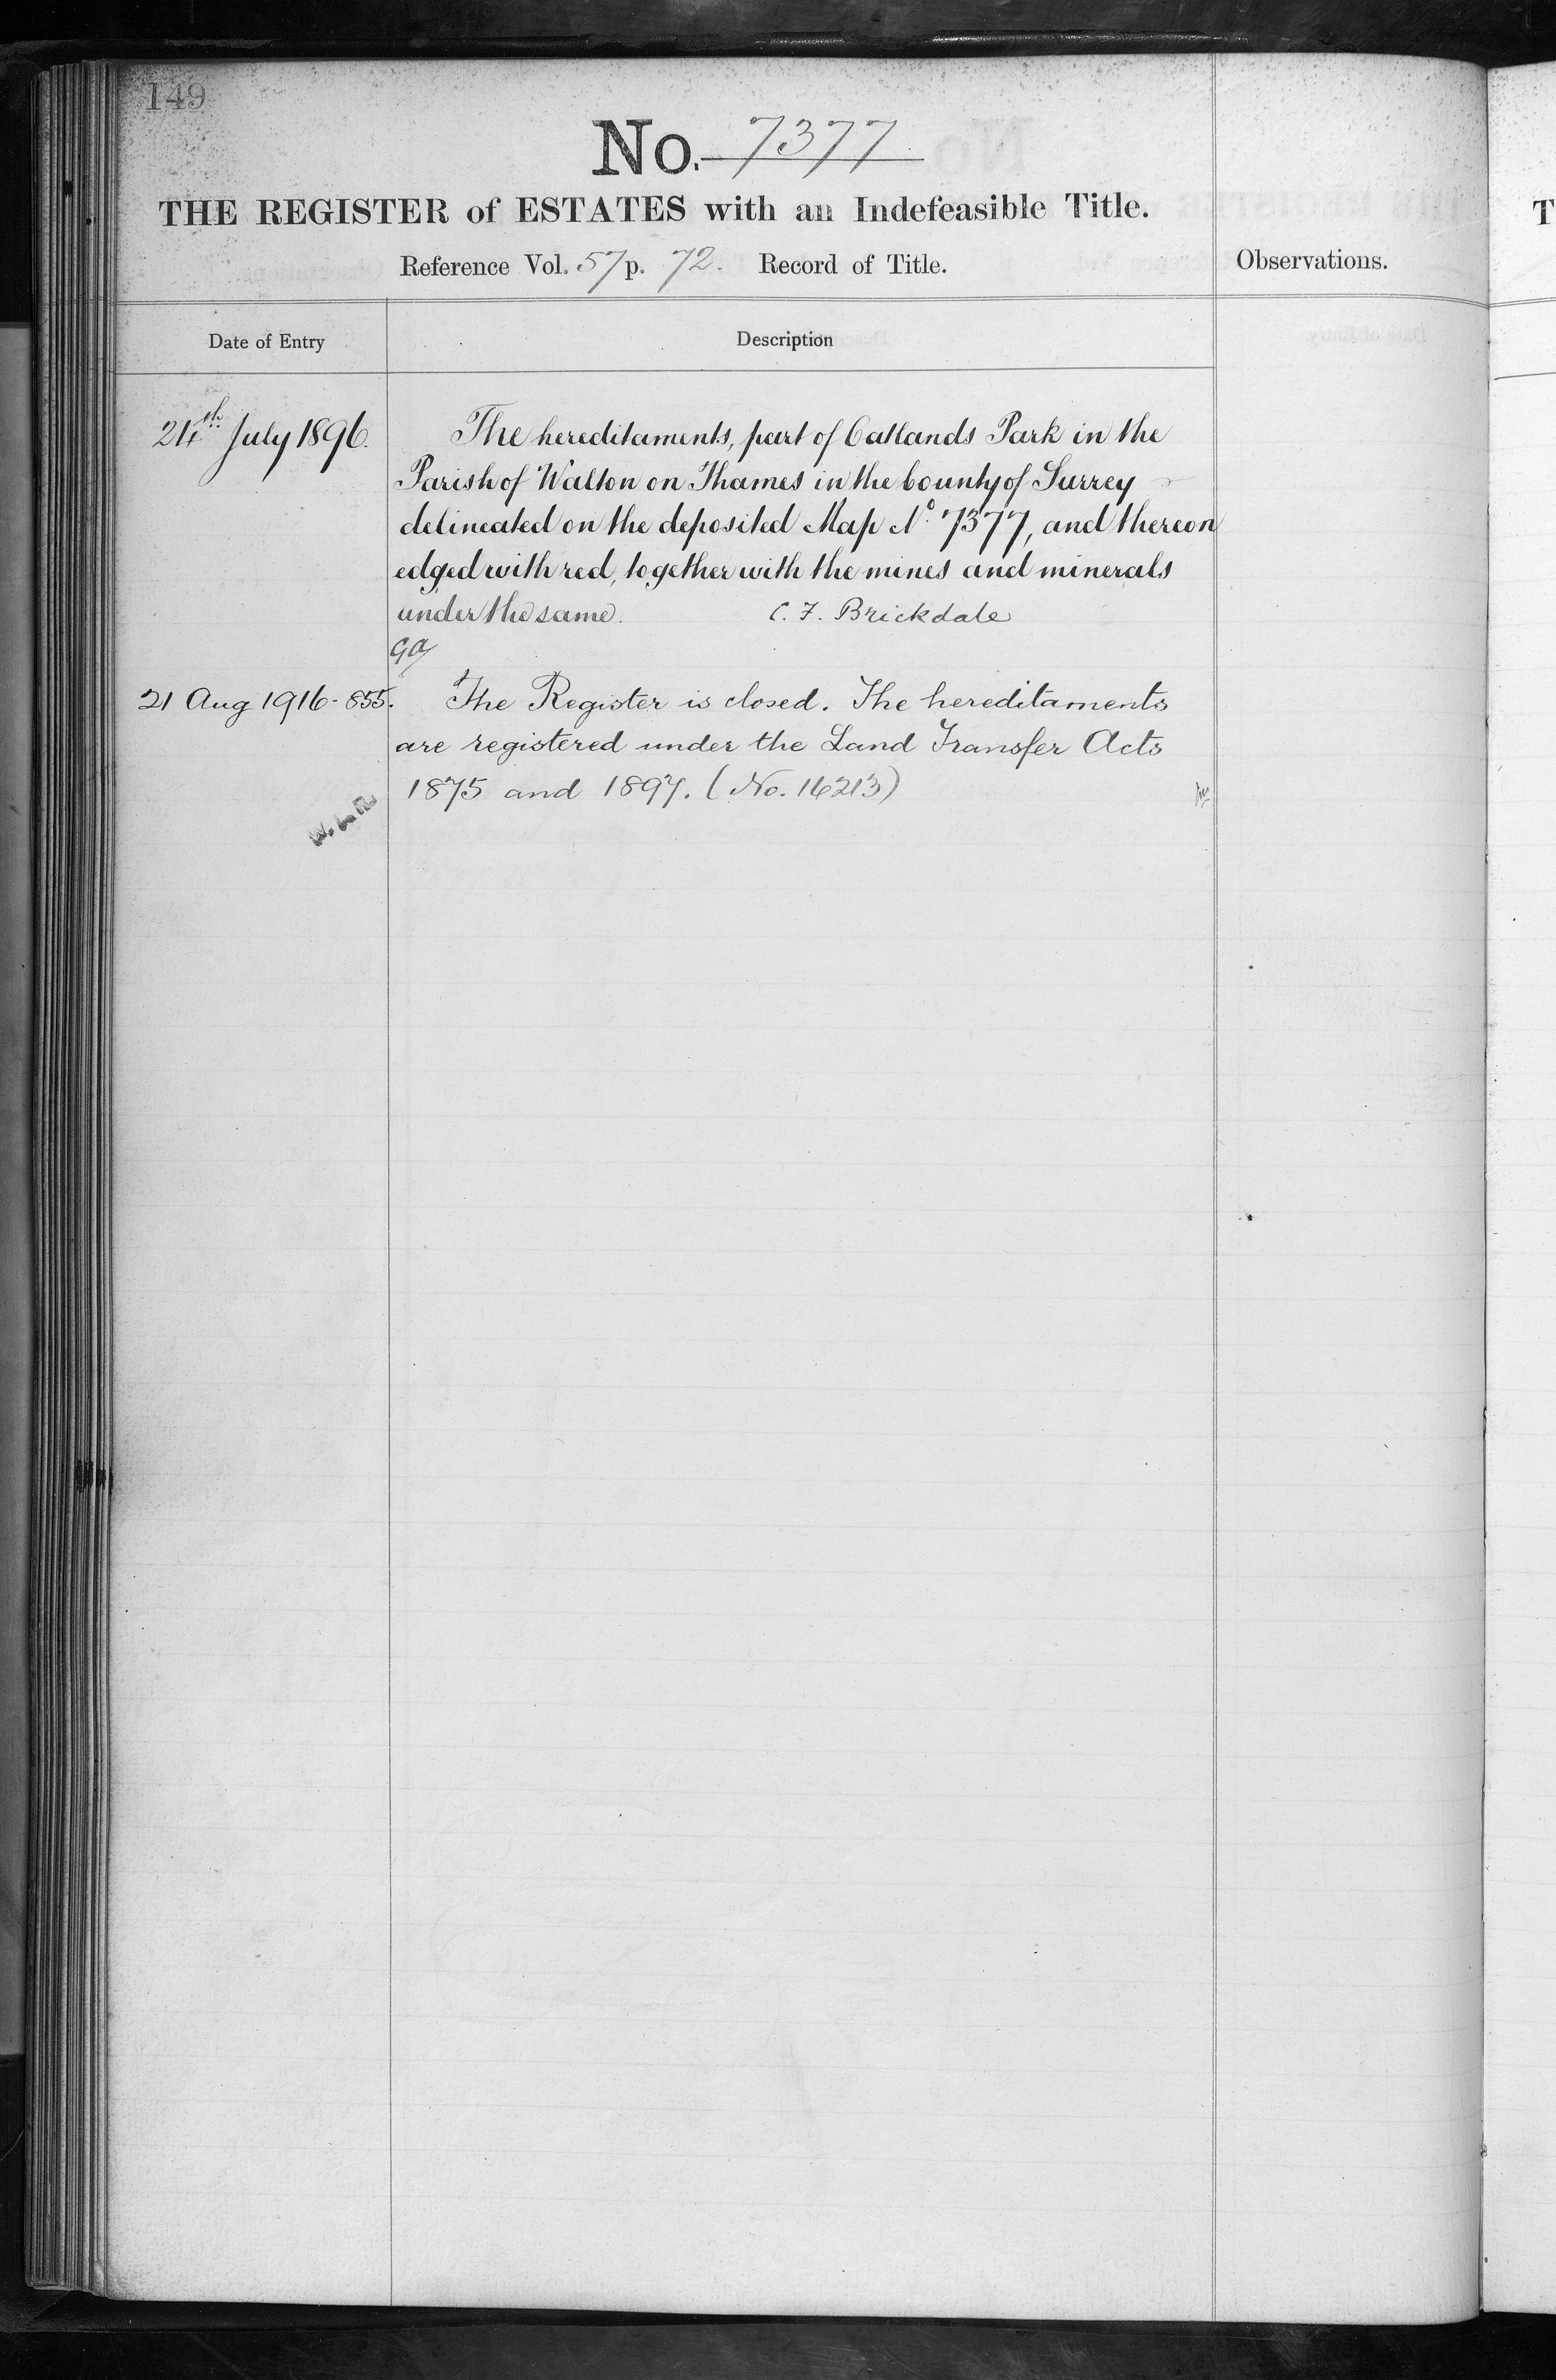 149
No. 7377
THE REGISTER of ESTATES with an Indefeasible Title.
Reference Vol. 57 p. 72. Record of Title.
Observations.
Date of Entry
Description
24th July 1896.
The hereditaments, part of Oatlands Park in the
Parish of Walton on Thames in the County of Surrey
delineated on the deposited Map No. 7377, and thereon
edged with red, together with the mines and minerals
under the same. C. F. Brickdale
GA
21 Aug 1916 - 855.
The Register is closed. The hereditaments
are registered under the Land Transfer Acts
1875 and 1897. (No. 16213)
T